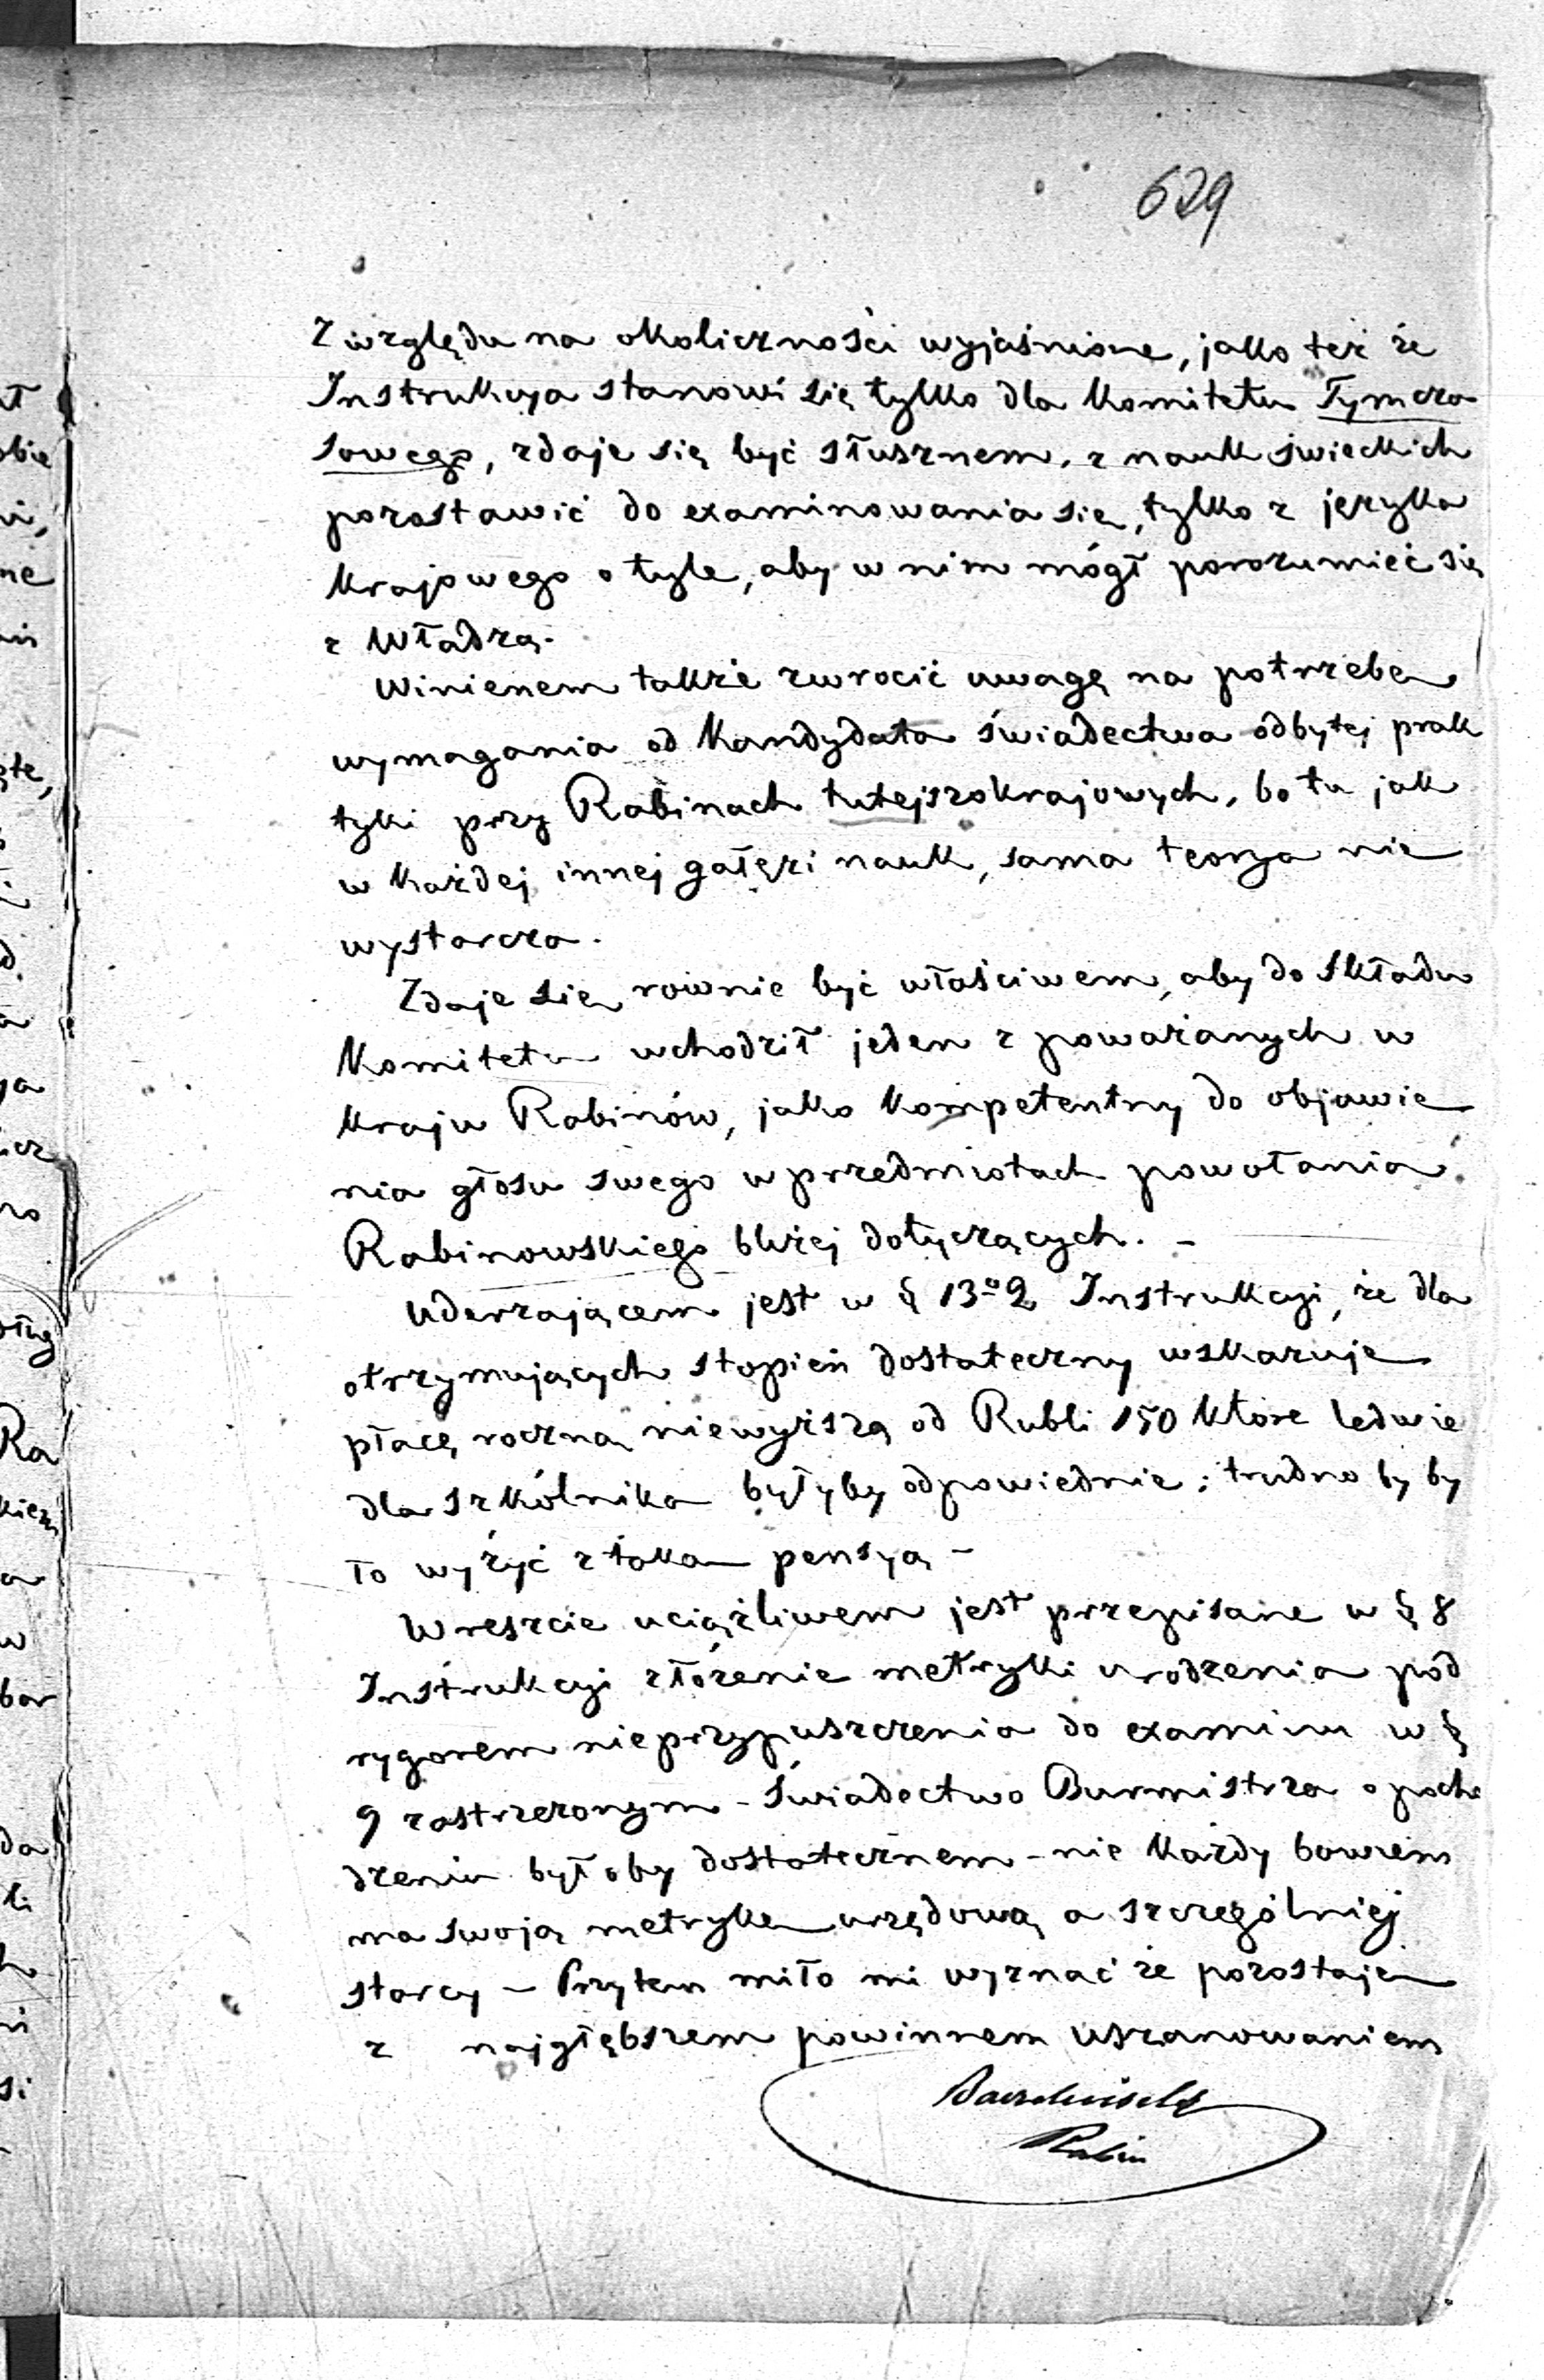 629
Z względu na okoliczności wyjaśnione, jako też że
Instrukcya stanowi się tylko dla Komitetu Tymcza
sowego, zdaje się być słusznem, z nauk świeckich
pozostawić do examinowania się, tylko z języka
Krajowego o tyle, aby w nim mógł porozumieć się
z Władzą.
Winienem także zwrocić uwagę na potrzebę
wymagania od Kandydata świadectwa odbytej prak
tyki przy Rabinach tutejszokrajowych, bo tu jak
w każdej innej gałęzi nauk, sama teorya nie
wystarcza.
Zdaje się rownie być właściwem, aby do składu
Komitetu wchodził jeden z poważanych w
Kraju Rabinów, jako Kompetentny do objawie
nia głosu swego w przedmiotach powołania
Rabinowskiego bliżej dotyczących. -
Uderzającem jest w § 13 Instrukcyi, że dla
otrzymujących stopień dostateczny wskazuje
płacę roczną niewyższą od Rubli 150 które ledwie
dla szkólnika byłyby odpowiednie; trudno by by
ło wyżyć z taką pensyą -
Wreszcie uciążliwem jest przepisane w § 8
Instrukcyi złóżenie metryki urodzenia pod
rygorem nieprzypuszczenia do examinu w §
9 zastrzeżonym - Świadectwo Burmistrza o pocho
dzeniu byłoby dostatecznem - nie każdy bowiem
ma swoją metrykę urzędową a szczególniej
starcy - Przytem miło mi wyznać że pozostaję
z najgłębszem powinnem uszanowaniem
Rabin